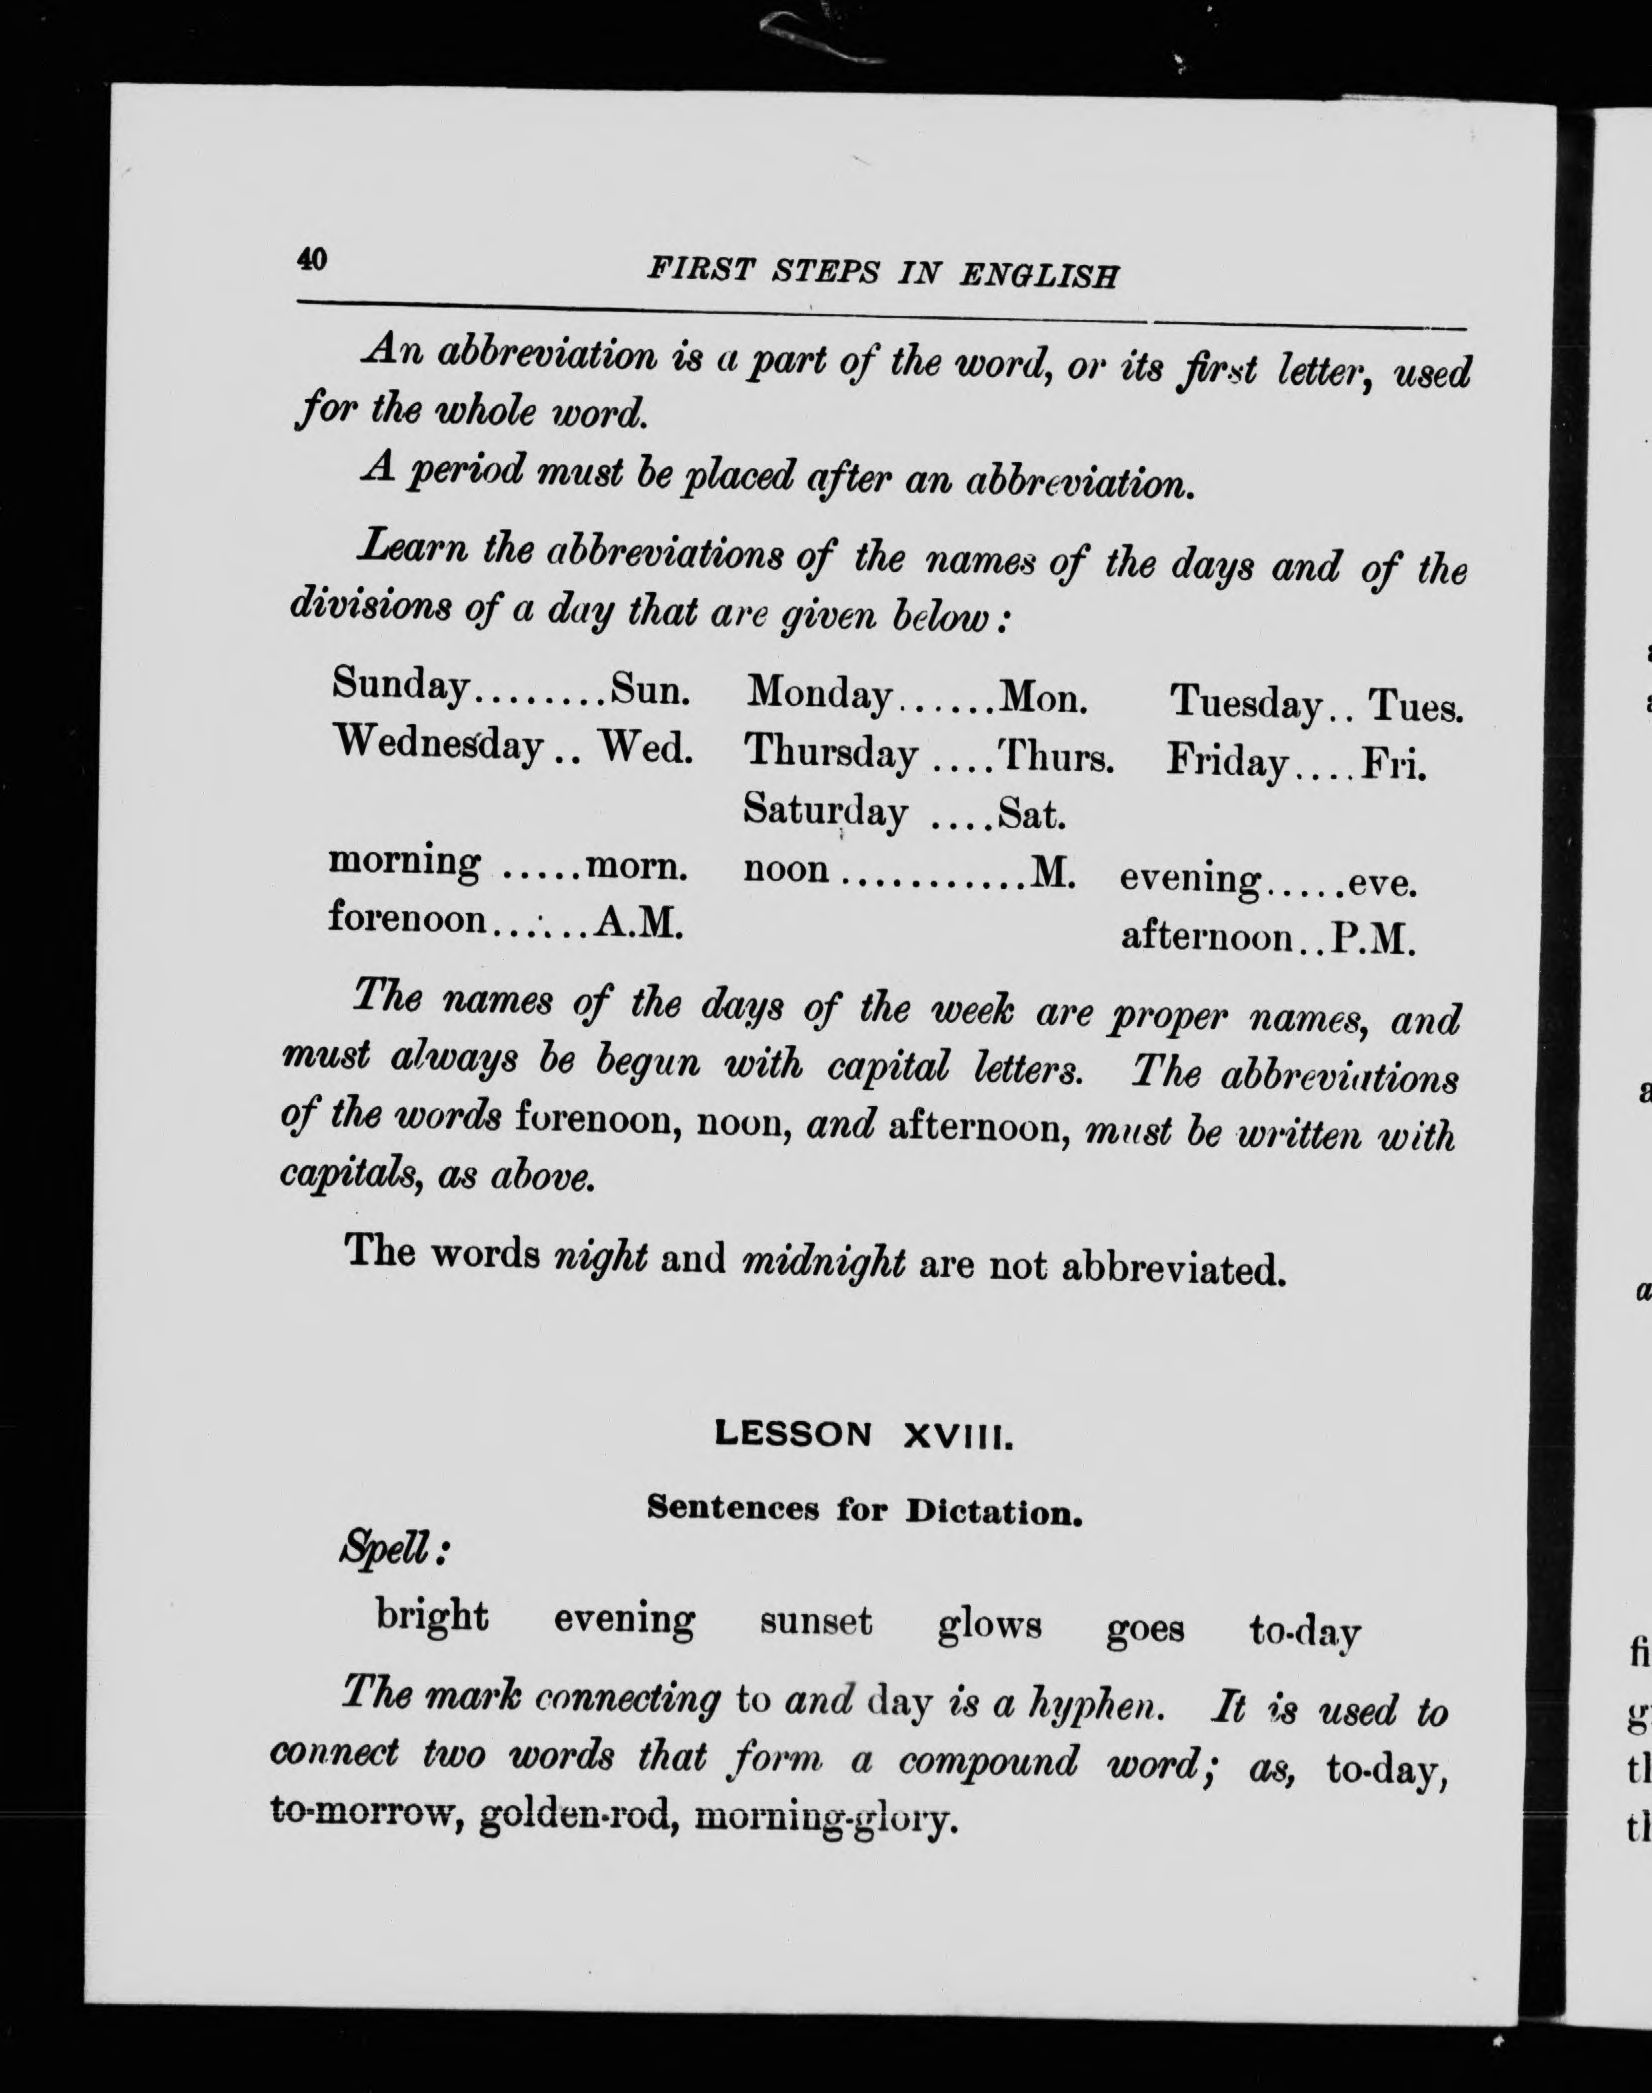 40
FIRST STEPS IN ENGLISH
An abbreviation is a part of the word, or its first letter, used
for the whole word.
A period must be placed after an abbreviation.
Learn the abbreviations of the names of the days and of the
divisions of a day that are given below:
Sunday........Sun. Monday......Mon. Tuesday.. Tues.
Wednesday.. Wed. Thursday ....Thurs. Friday....Fri.
Saturday ....Sat.
morning .....morn. noon............M. evening.....eve.
forenoon......A.M.
afternoon..P.M.
The names of the days of the week are proper names, and
must always be begun with capital letters. The abbreviations
of the words forenoon, noon, and afternoon, must be written with
capitals, as above.
The words night and midnight are not abbreviated.
LESSON XVIII.
Sentences for Dictation.
Spell:
bright evening sunset glows goes to-day
The mark connecting to and day is a hyphen. It is used to
connect two words that form a compound word; as, to-day,
to-morrow, golden-rod, morning-glory.